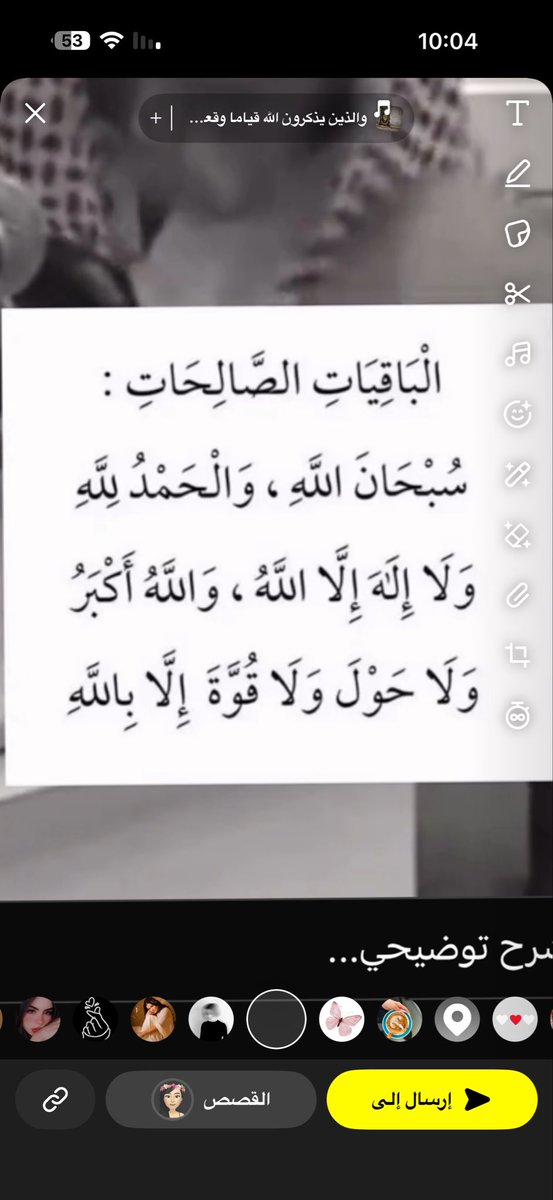 53
10:04
والذين يذكرون الله قياما وقعـ...
الْبَاقِيَاتِ الصَّالِحَاتِ :
سُبْحَانَ اللَّهِ ، وَالْحَمْدُ لِلَّهِ
وَلَا إِلَٰهَ إِلَّا اللَّهُ ، وَاللَّهُ أَكْبَرُ
وَلَا حَوْلَ وَلَا قُوَّةَ إِلَّا بِاللَّهِ
توضيحي...
القصص
إرسال إلى